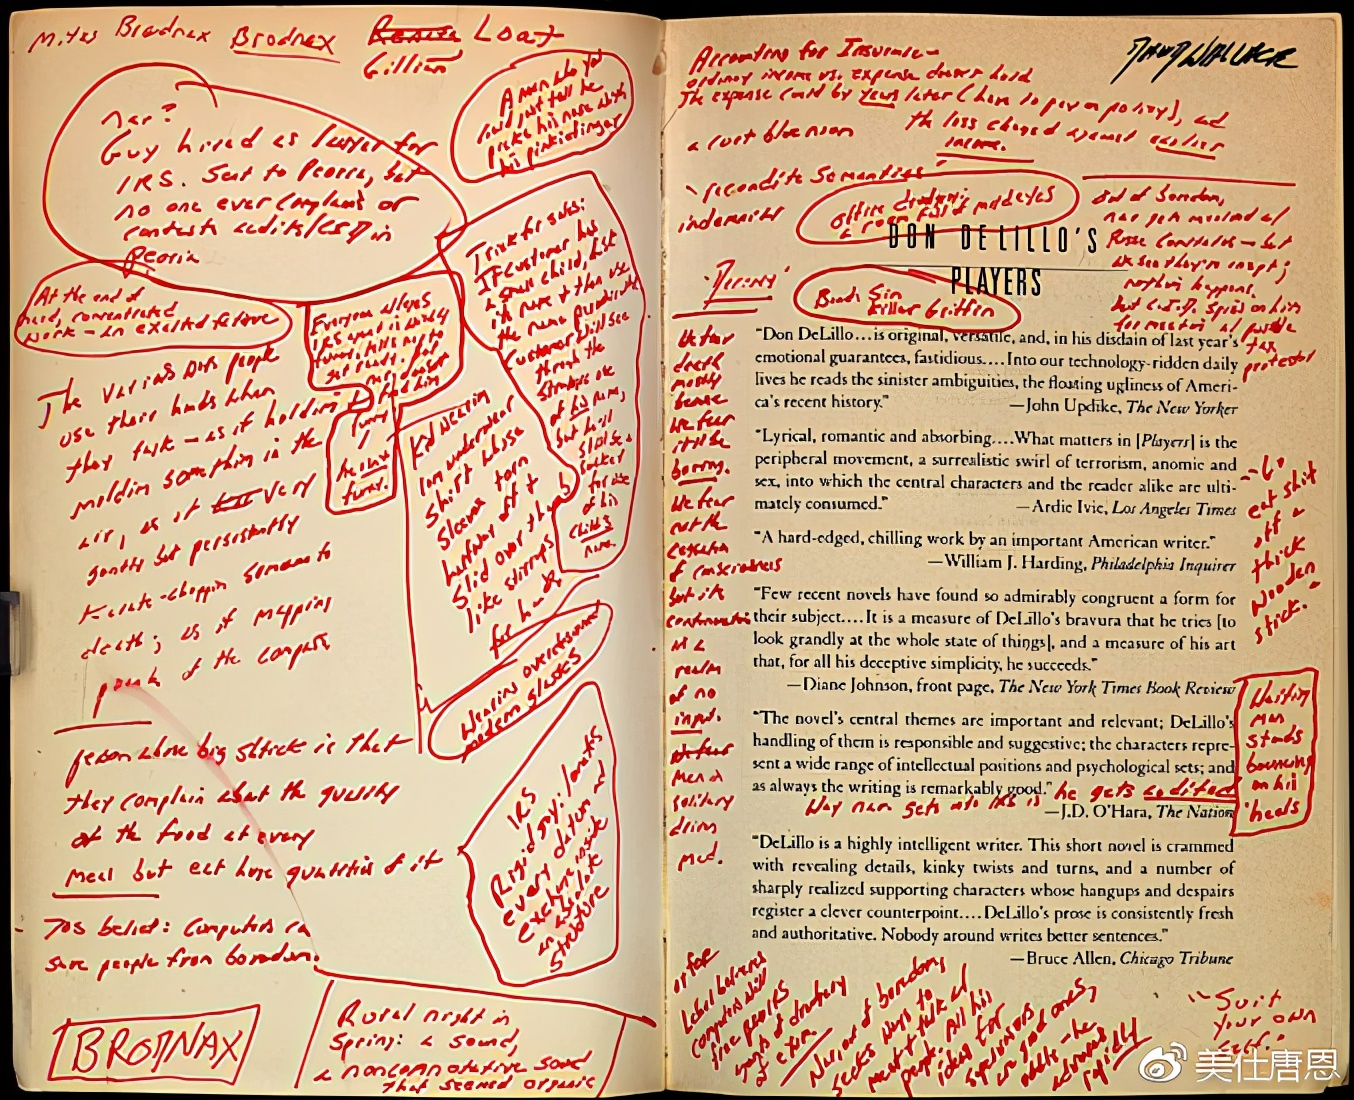 Mites Brodnax Brodnax Loat
Gillian
nar?
Guy hired as lawyer for
IRS. Sent to Peoria, but
no one ever complains or
contests audits/CSD in
Peoria
A man who you
could just tell he
picks his nose with
his pinkie finger
Trick for sales:
If customer has
a small child, ask
its name & then use
the name
Customer will see
through the
strategic use
of his name,
but he'll
still be a
sucker
for use
of his
child's
name.
At the end of
hard, concentrated
work – an exalted fatigue
Everyone
The various ways people
use their hands when
they talk – as if holding
molding something in the
air, as if very
gently but persistently
Karate-chopping someone to
death; as if mapping
points of the compass
Kid wearing
long underwear
shirt whose
sleeves
halfway off &
slid over thumb
like stirrups
for hands
Wearing oversized
modern glasses
person whose big shtick is that
they complain about the quality
of the food at every
meal but eat huge quantities of it
IRS
Rigid guy: locates
every datum and
exchange inside
an absolute
structure
70s belief: Computers can
save people from boredom.
BRODNAX
Rural night in
Spring: a sound,
a nonconnotative sound
that seemed organic
DAVID WALLACE
Accounting for Insurance –
ordinary income vs. expense
The expense could be years later (have to pay on policy), and
the loss charged against earlier
income.
a curt bloenson
"recondite semantics"
indemnitee
office drudgery:
a room full of dead eyes
DON DELILLO'S
PLAYERS
Out of boredom,
nar gets involved w/
Posse Comitatus – but
we see they're inept;
nothing happens,
but C.I.D. spies on him
for meeting w/ possible
tax
protestor
Brad: Sin
Killer Griffin
We fear
death
mostly
because
we fear
it'll be
boring.
We fear
not the
cessation
of consciousness
but its
continuation
in a
realm
of no
input.
Men in
solitary
going
mad.
"Don DeLillo...is original, versatile, and, in his disdain of last year's
emotional guarantees, fastidious....Into our technology-ridden daily
lives he reads the sinister ambiguities, the floating ugliness of Ameri-
ca's recent history." —John Updike, The New Yorker
"Lyrical, romantic and absorbing....What matters in [Players] is the
peripheral movement, a surrealistic swirl of terrorism, anomic and
sex, into which the central characters and the reader alike are ulti-
mately consumed." —Ardic Ivic, Los Angeles Times
"A hard-edged, chilling work by an important American writer."
—William J. Harding, Philadelphia Inquirer
"Few recent novels have found so admirably congruent a form for
their subject....It is a measure of DeLillo's bravura that he tries [to
look grandly at the whole state of things], and a measure of his art
that, for all his deceptive simplicity, he succeeds."
—Diane Johnson, front page, The New York Times Book Review
"The novel's central themes are important and relevant; DeLillo's
handling of them is responsible and suggestive; the characters repre-
sent a wide range of intellectual positions and psychological sets; and
as always the writing is remarkably good."
—J.D. O'Hara, The Nation
Way nar gets into this is he gets audited
"DeLillo is a highly intelligent writer. This short novel is crammed
with revealing details, kinky twists and turns, and a number of
sharply realized supporting characters whose hangups and despairs
register a clever counterpoint....DeLillo's prose is consistently fresh
and authoritative. Nobody around writes better sentences."
—Bruce Allen, Chicago Tribune
–"I
eat shit
off a
thick
wooden
stick."
Waiting
man
stands
bouncing
on his
heels
computers will
free people
of drudgery
Nar, out of boredom,
seeks ways to
meet & talk w/
people. All his
ideas for
supervisors
are good ones,
oddly – he
advances
rapidly
"Suit
your own
self."
美仕唐恩